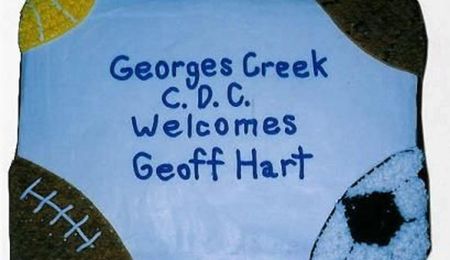 Georges Creek
C. D. C.
Welcomes
Geoff Hart